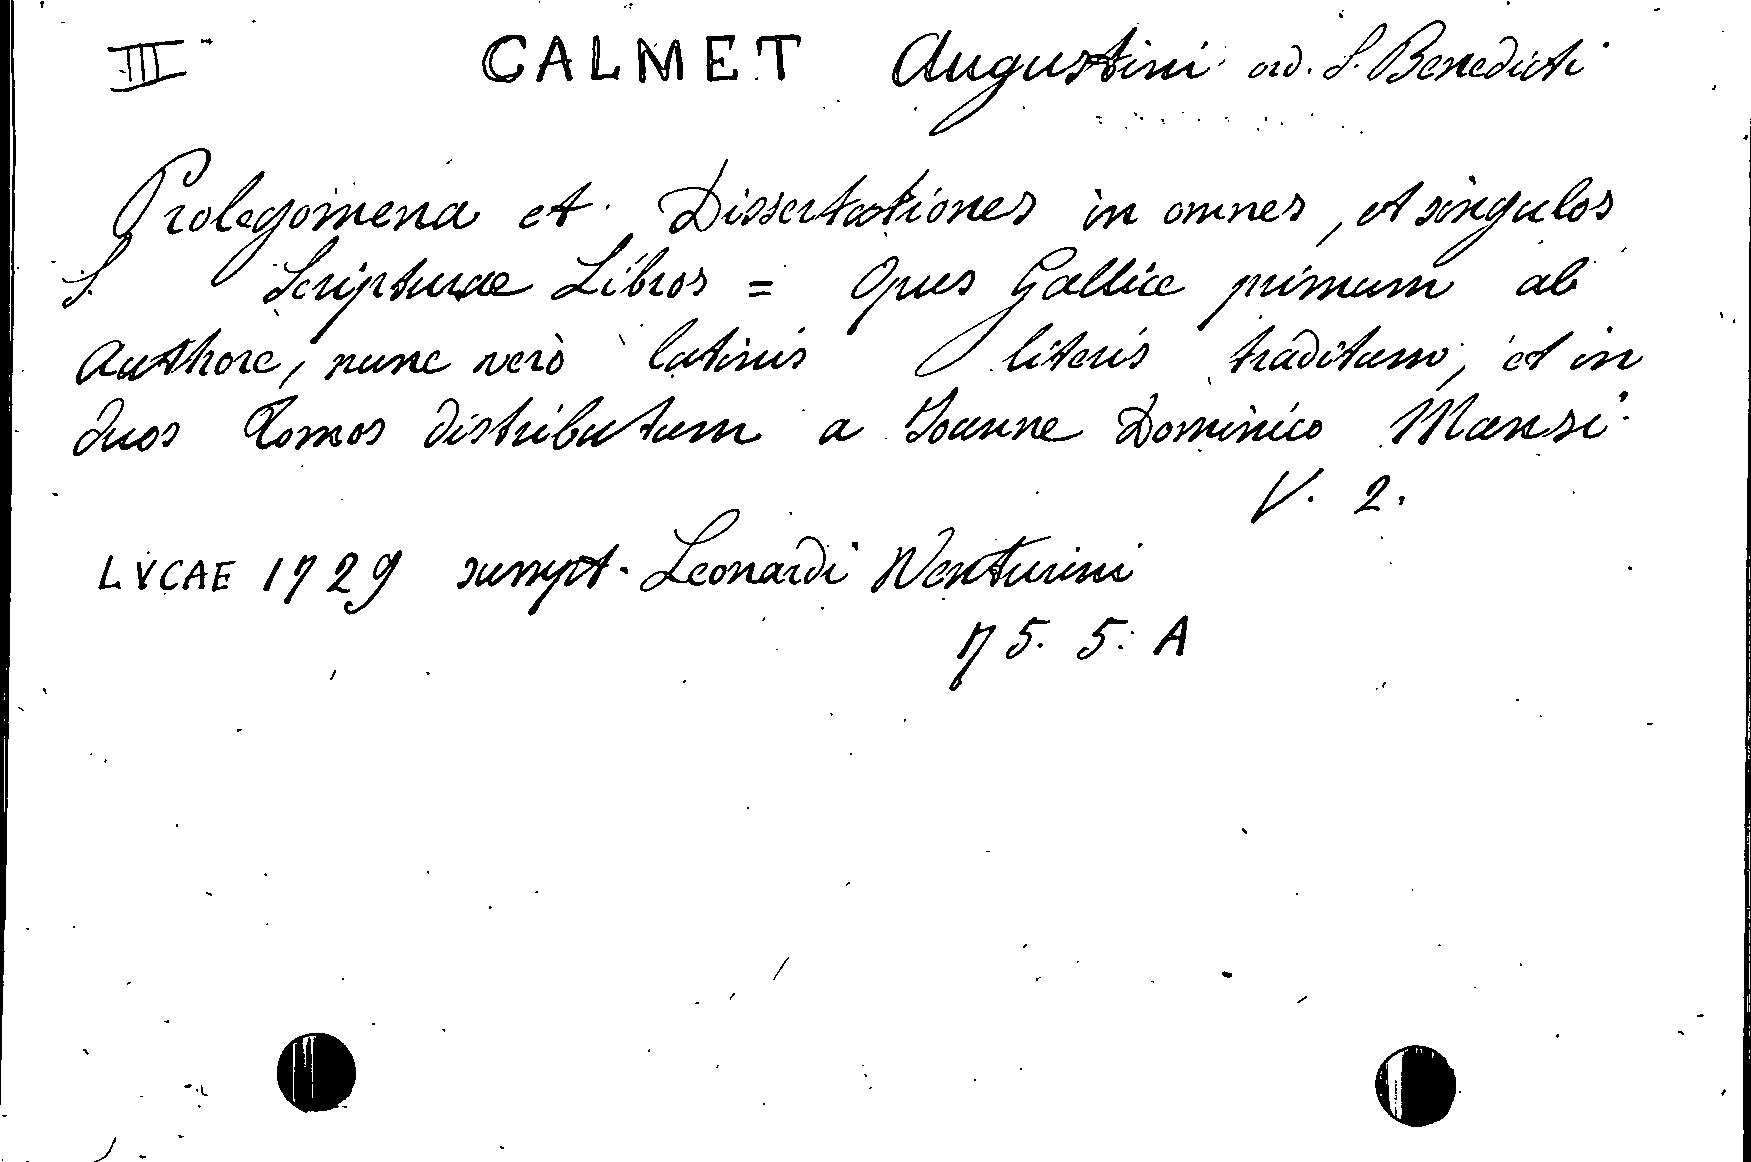 III CALMET Augustini ord. S. Benedicti
Prolegomena et Dissertationes in omnes, et singulos
S. Scripturae Libros = Opus Gallice primum ab
authore, nunc verò latinis literis traditum, et in
duos Tomos distributum a Joanne Dominico Mansi
V. 2.
LVCAE 1729 sumpt. Leonardi Venturini
75. 5. A